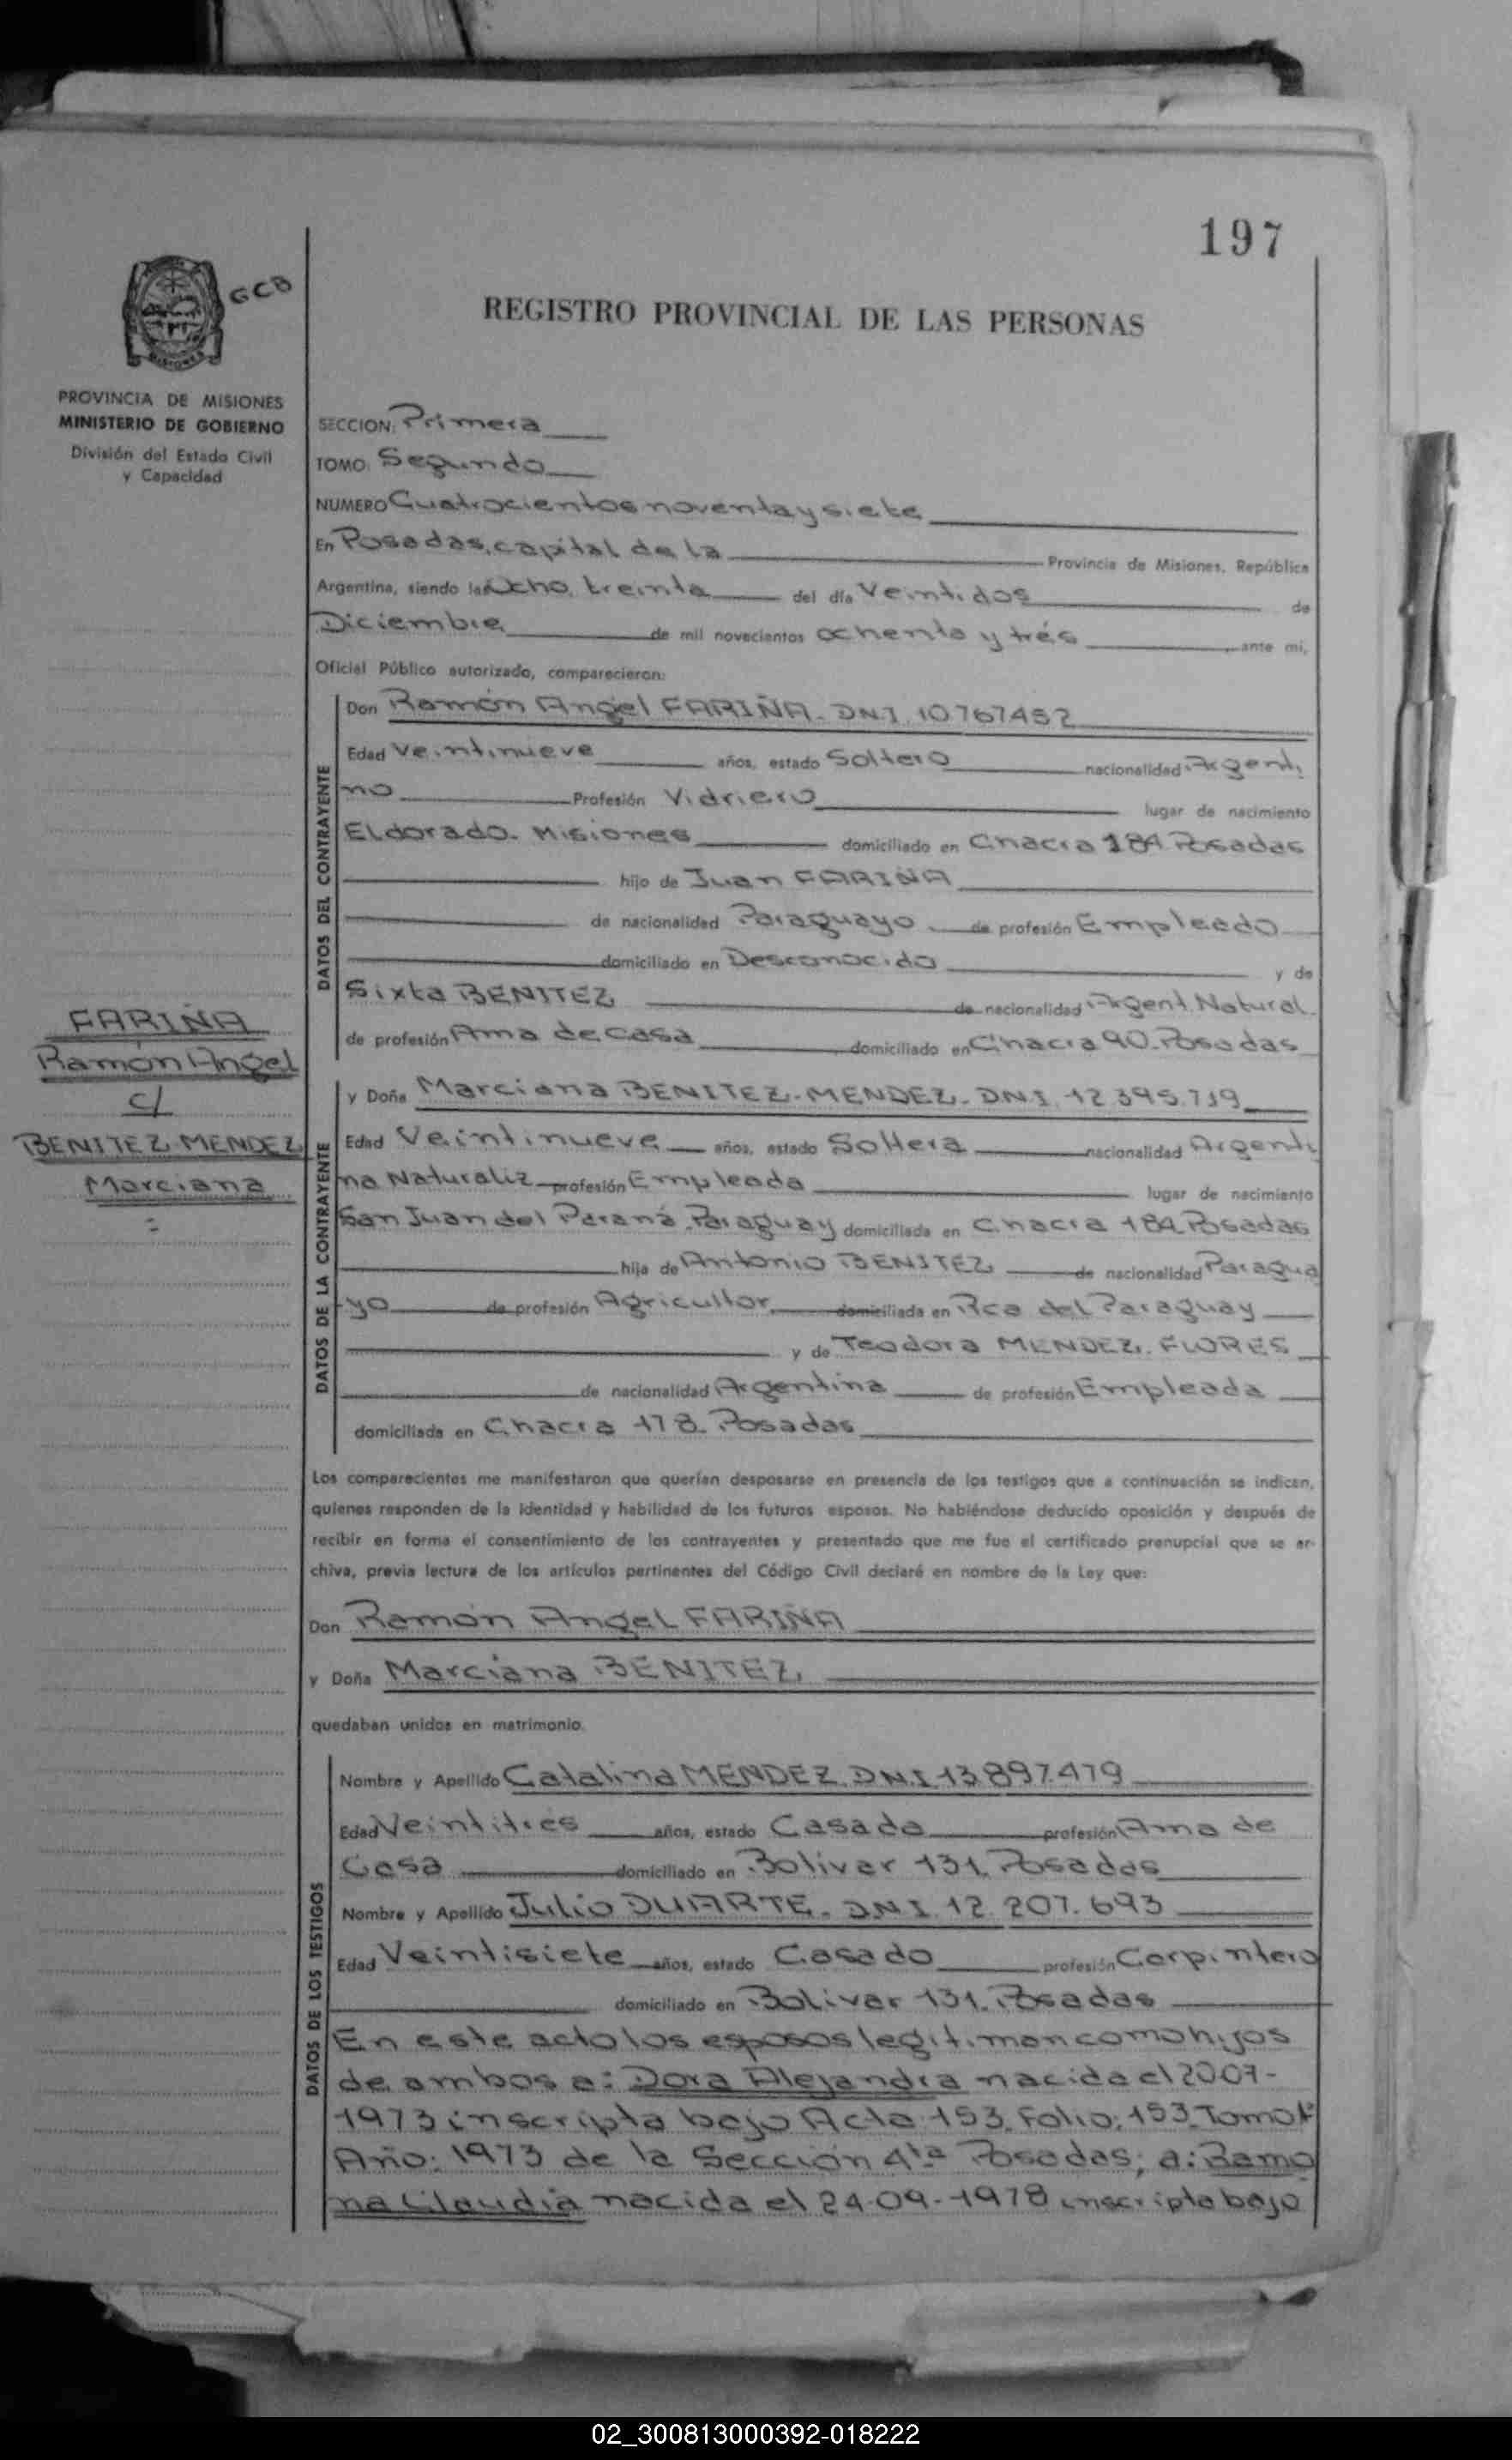 197
GCB
REGISTRO PROVINCIAL DE LAS PERSONAS
MISIONES
PROVINCIA DE MISIONES
MINISTERIO DE GOBIERNO
División del Estado Civil
y Capacidad
SECCION: Primera
TOMO: Segundo
NUMERO Cuatrocientos noventa y siete
En Posadas, capital de la Provincia de Misiones, República
Argentina, siendo las Ocho, treinta del día Veintidos de
Diciembre de mil novecientos ochenta y trés, ante mí,
Oficial Público autorizado, comparecieron:
DATOS DEL CONTRAYENTE
Don Ramón Angel FARIÑA - DNI. 10767452
Edad Veintinueve años, estado Soltero nacionalidad Argenti
no Profesión Vidriero lugar de nacimiento
Eldorado. Misiones domiciliado en Chacra 184 Posadas
hijo de Juan FARIÑA
de nacionalidad Paraguayo de profesión Empleado
domiciliado en Desconocido y de
Sixta BENITEZ de nacionalidad Argent. Natural.
de profesión Ama de casa domiciliado en Chacra 90. Posadas
FARIÑA
Ramón Angel
c/
BENITEZ MENDEZ
Marciana
=
DATOS DE LA CONTRAYENTE
y Doña Marciana BENITEZ-MENDEZ - DNI. 12.395.719
Edad Veintinueve años, estado Soltera nacionalidad Argenti
na Naturaliz profesión Empleada lugar de nacimiento
San Juan del Paraná. Paraguay domiciliada en Chacra 184 Posadas
hija de Antonio BENITEZ de nacionalidad Paragua
yo de profesión Agricultor domiciliada en Rca del Paraguay
y de Teodora MENDEZ. FLORES
de nacionalidad Argentina de profesión Empleada
domiciliada en Chacra 178. Posadas
Los comparecientes me manifestaron que querían desposarse en presencia de los testigos que a continuación se indican,
quienes responden de la identidad y habilidad de los futuros esposos. No habiéndose deducido oposición y después de
recibir en forma el consentimiento de los contrayentes y presentado que me fue el certificado prenupcial que se ar-
chiva, previa lectura de los artículos pertinentes del Código Civil declaré en nombre de la Ley que:
Don Ramón Angel FARIÑA
y Doña Marciana BENITEZ
quedaban unidos en matrimonio.
DATOS DE LOS TESTIGOS
Nombre y Apellido Catalina MENDEZ. DN.I 13.897.479
Edad Veintitres años, estado Casada profesión Ama de
Casa domiciliado en Bolivar 131. Posadas
Nombre y Apellido Julio DUARTE. DNI. 12.207.693
Edad Veintisiete años, estado Casado profesión Carpintero
domiciliado en Bolivar 131. Posadas
En este acto los esposos legitiman como hijos
de ambos a: Dora Alejandra nacida el 2007-
1973 inscripta bajo Acta: 153. Folio: 153. Tomo
Año: 1973 de la Sección 4ta Posadas; a: Ramo
na Claudia nacida el 24-09-1978 inscripta bajo
02_300813000392-018222